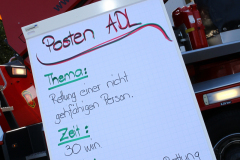 Posten ADL
Thema:
Rettung einer nicht
gehfähigen Person.
Zeit:
30 min
Rettung